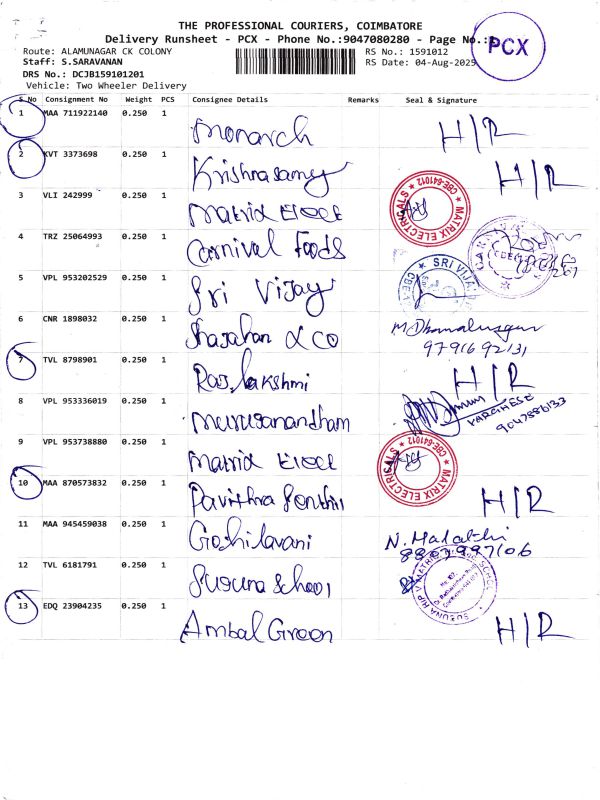 THE PROFESSIONAL COURIERS, COIMBATORE
Delivery Runsheet - PCX - Phone No.:9047080280 - Page No.:
PCX
Route: ALAMUNAGAR CK COLONY
RS No.: 1591012
Staff: S.SARAVANAN
RS Date: 04-Aug-2025
DRS No.: DCJB159101201
Vehicle: Two Wheeler Delivery
S No Consignment No Weight PCS Consignee Details Remarks Seal & Signature
1 MAA 711922140 0.250 1 Monarch H/R
2 KVT 3373698 0.250 1 Krishnasamy H/R
3 VLI 242999 0.250 1 Matrix Elect MATRIX ELECTRICALS CBE-641012
4 TRZ 25064993 0.250 1 Carnival Foods
5 VPL 953202529 0.250 1 Sri Vijay SRI VIJAY
6 CNR 1898032 0.250 1 Shajahan & CO M Dhanalu
9791692131
7 TVL 8798901 0.250 1 Rajlakshmi H/R
8 VPL 953336019 0.250 1 Murusanandham VARGHESE
9047886133
9 VPL 953738880 0.250 1 Matrix Elect MATRIX ELECTRICALS CBE-641012
10 MAA 870573832 0.250 1 Pavithra Senthil H/R
11 MAA 945459038 0.250 1 Goshilavani N. Malathi
8807997106
12 TVL 6181791 0.250 1 Suguna School
13 EDQ 23904235 0.250 1 Ambal Green H/R